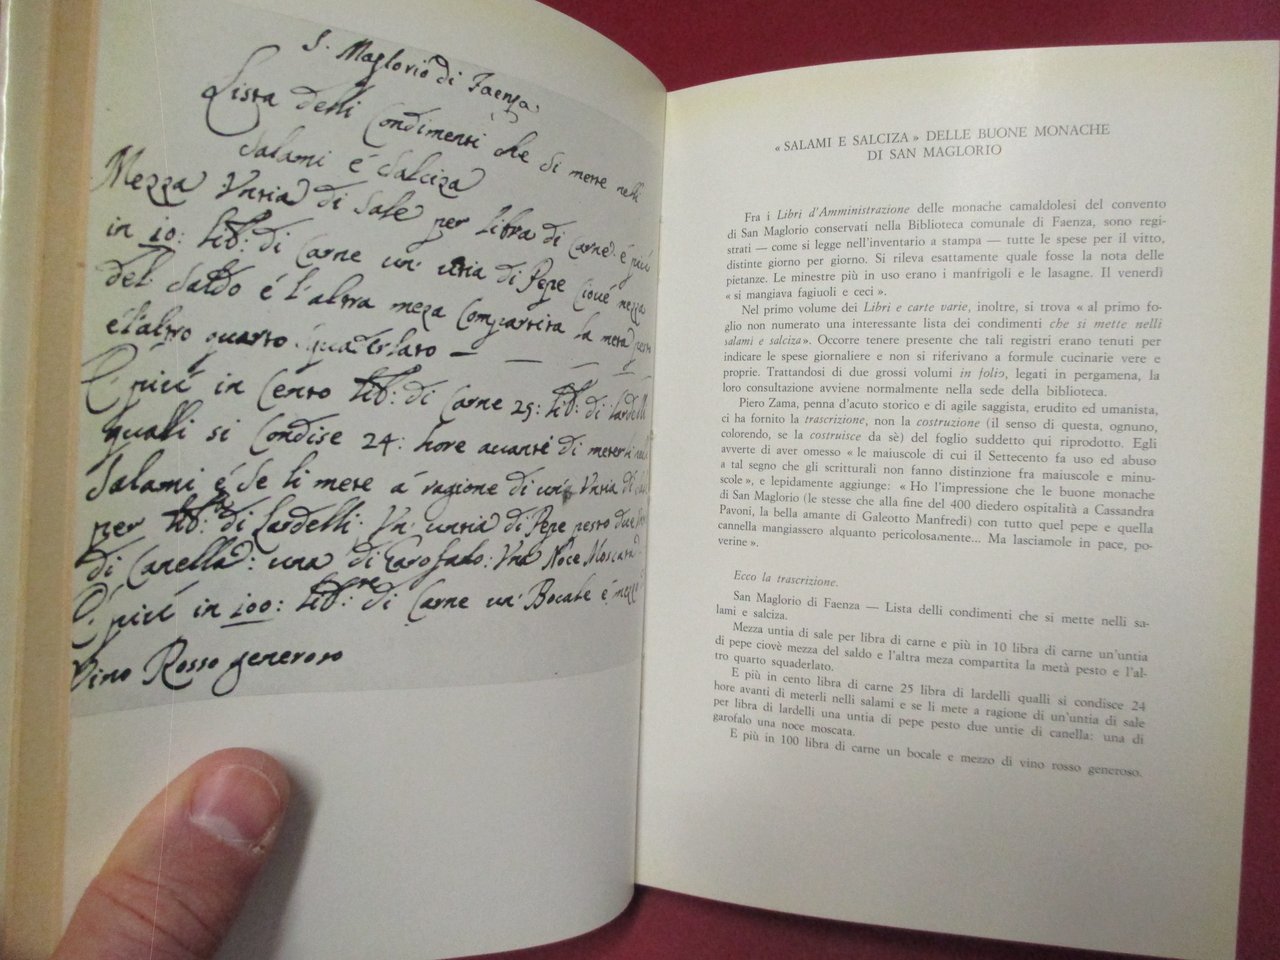 S. Maglorio di Faenza
Lista delli Condimenti che si mette nelli
Salami é Salciza
Mezza Untia di Sale per Libra di Carne é più
in 10: lib: di Carne un' untia di Pepe Ciové mezza
del Saldo é l'altra meza Compartita la metà pesto
é l'altro quarto squaderlato —
E più in Cento lib: di Carne 25: lib: di Lardelli
qualli si Condise 24: hore avanti di meterli nelli
Salami é Se li mete à ragione di un' Untia di Sale
per lib:ra di Lardelli: Un' untia di Pepe pesto due Untie
di Canella: una di Garofalo: Una Noce Moscata
E più in 100: lib:re di Carne un' Bocale é mezzo
Vino Rosso generoso
« SALAMI E SALCIZA » DELLE BUONE MONACHE
DI SAN MAGLORIO
Fra i Libri d'Amministrazione delle monache camaldolesi del convento
di San Maglorio conservati nella Biblioteca comunale di Faenza, sono regi-
strati — come si legge nell'inventario a stampa — tutte le spese per il vitto,
distinte giorno per giorno. Si rileva esattamente quale fosse la nota delle
pietanze. Le minestre più in uso erano i manfrigoli e le lasagne. Il venerdì
« si mangiava fagiuoli e ceci ».
Nel primo volume dei Libri e carte varie, inoltre, si trova « al primo fo-
glio non numerato una interessante lista dei condimenti che si mette nelli
salami e salciza». Occorre tenere presente che tali registri erano tenuti per
indicare le spese giornaliere e non si riferivano a formule cucinarie vere e
proprie. Trattandosi di due grossi volumi in folio, legati in pergamena, la
loro consultazione avviene normalmente nella sede della biblioteca.
Piero Zama, penna d'acuto storico e di agile saggista, erudito ed umanista,
ci ha fornito la trascrizione, non la costruzione (il senso di questa, ognuno,
colorendo, se la costruisce da sè) del foglio suddetto qui riprodotto. Egli
avverte di aver omesso « le maiuscole di cui il Settecento fa uso ed abuso
a tal segno che gli scritturali non fanno distinzione fra maiuscole e minu-
scole », e lepidamente aggiunge: « Ho l'impressione che le buone monache
di San Maglorio (le stesse che alla fine del 400 diedero ospitalità a Cassandra
Pavoni, la bella amante di Galeotto Manfredi) con tutto quel pepe e quella
cannella mangiassero alquanto pericolosamente... Ma lasciamole in pace, po-
verine ».
Ecco la trascrizione.
San Maglorio di Faenza — Lista delli condimenti che si mette nelli sa-
lami e salciza.
Mezza untia di sale per libra di carne e più in 10 libra di carne un'untia
di pepe ciovè mezza del saldo e l'altra meza compartita la metà pesto e l'al-
tro quarto squaderlato.
E più in cento libra di carne 25 libra di lardelli qualli si condisce 24
hore avanti di meterli nelli salami e se li mete a ragione di un'untia di sale
per libra di lardelli una untia di pepe pesto due untie di canella: una di
garofalo una noce moscata.
E più in 100 libra di carne un bocale e mezzo di vino rosso generoso.